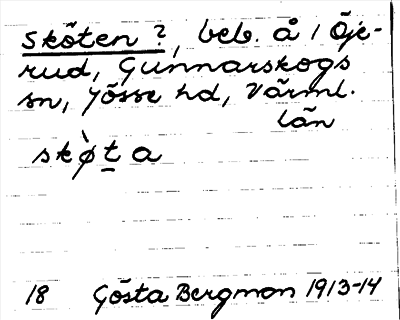 Sköten ?, beb. å / Öje-
rud, Gunnarskogs
sn, Jösse hd, Värml.
län
skø̀ṯa
18 Gösta Bergman 1913-14